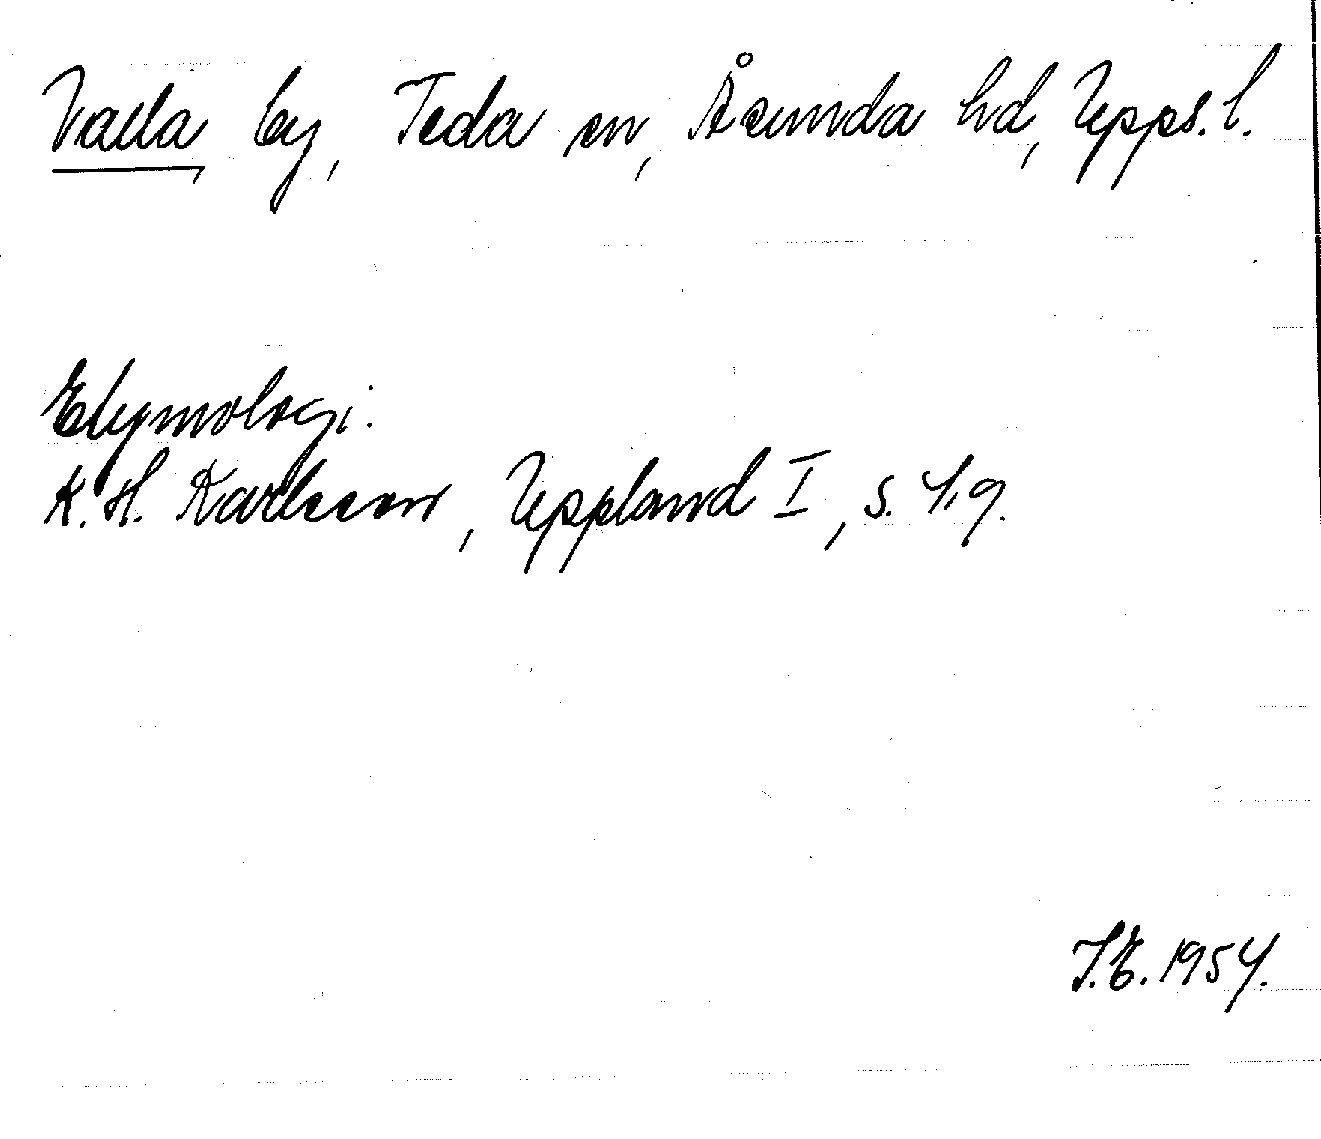 Valla by, Teda sn, Åsunda hd, Upps. l.
Etymologi:
K. H. Karlsson, Uppland I, s. 419.
J.E. 1954.